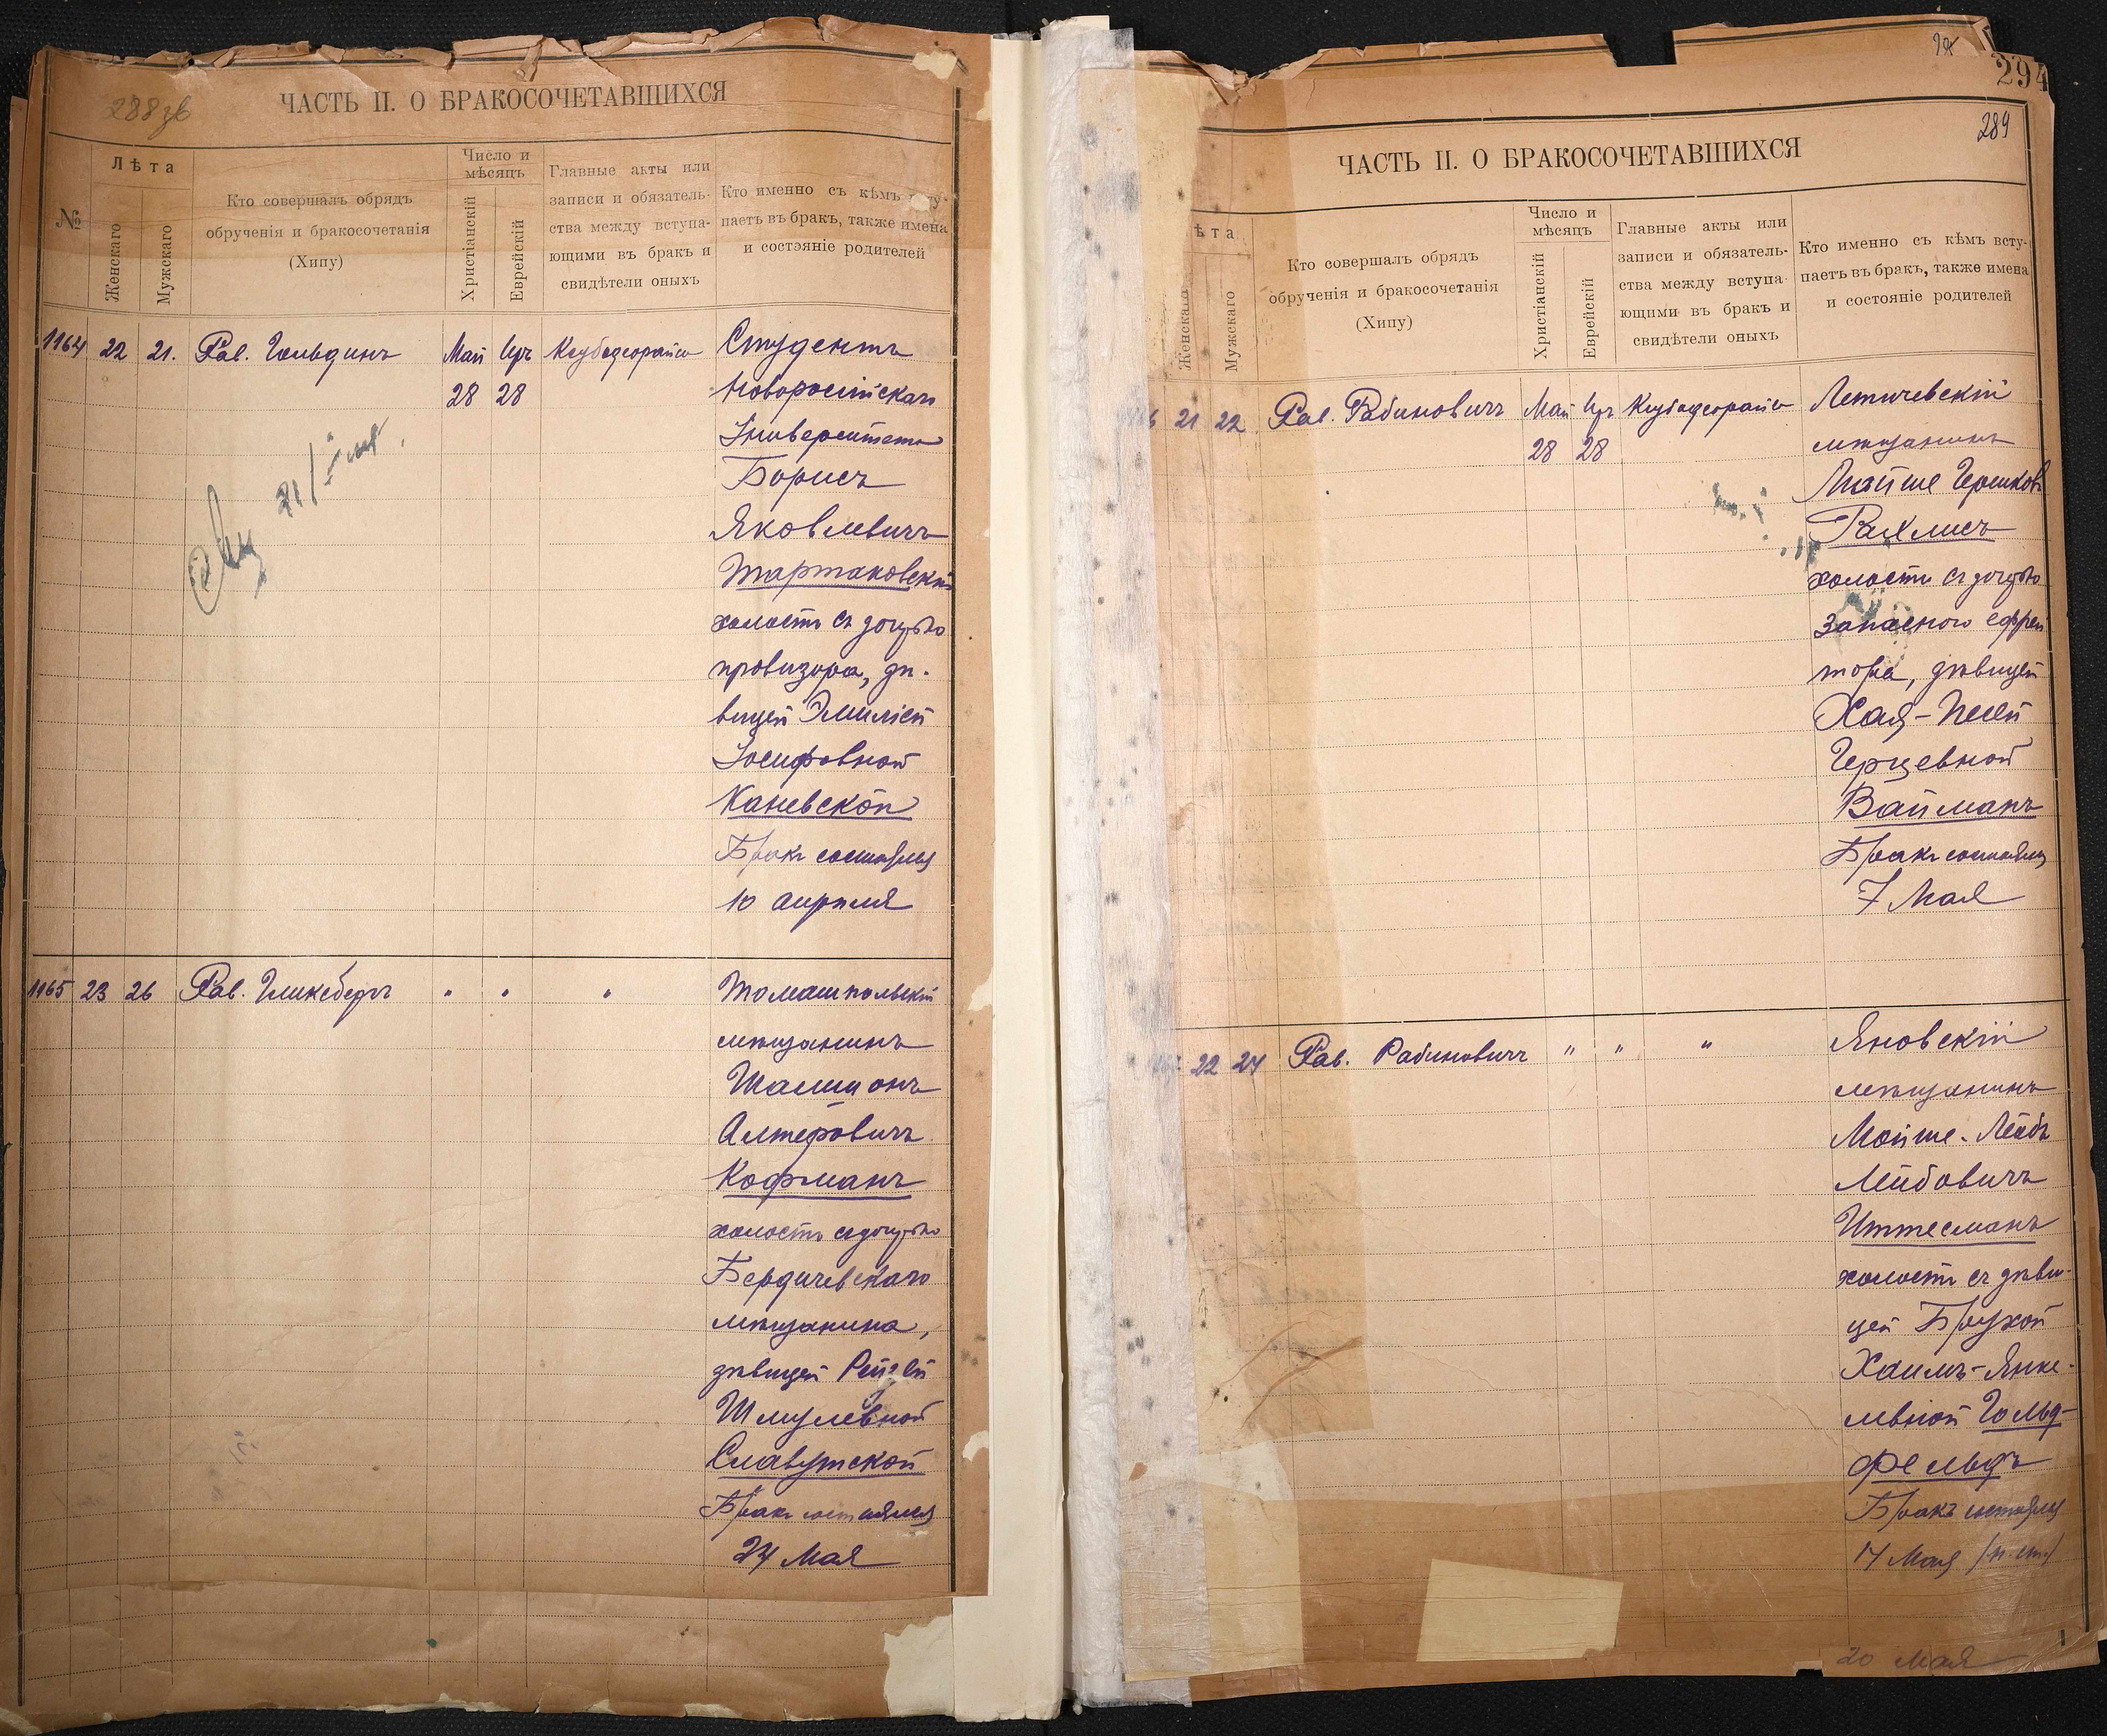 288 зв
ЧАСТЬ II. О БРАКОСОЧЕТАВШИХСЯ
№
Лѣта
Женскаго
Мужскаго
Кто совершалъ обрядъ
обрученія и бракосочетанія
(Хипу)
Число и
мѣсяцъ
Христіанскій
Еврейскій
Главные акты или
записи и обязатель-
ства между вступа-
ющими въ бракъ и
свидѣтели оныхъ
Кто именно съ кѣмъ всту-
паетъ въ бракъ, также имена
и состояніе родителей
1164 22 21. Рав. Гольдинъ Май Иръ Ксубедеорайсо Студентъ
28 28 Новороссійскаго
Университета
Борисъ
Яковлевичъ
Тартаковскій
холостъ съ дочерью
провизора, дѣ-
вицей Эмиліей
Іосифовной
Каневской
Бракъ состоялся
10 апрѣля
1165 23 26 Рав. Гликсбергъ " " " Томашпольскій
мѣщанинъ
Шалимонъ
Алтеровичъ
Кофманъ
холостъ съ дочерью
Бердичевскаго
мѣщанина,
дѣвицей Рейзей
Шмулевной
Славутской
Бракъ состоялся
24 Мая
294
289
ЧАСТЬ II. О БРАКОСОЧЕТАВШИХСЯ
ѣта
Женскаго
Мужскаго
Кто совершалъ обрядъ
обрученія и бракосочетанія
(Хипу)
Число и
мѣсяцъ
Христіанскій
Еврейскій
Главные акты или
записи и обязатель-
ства между вступа-
ющими въ бракъ и
свидѣтели оныхъ
Кто именно съ кѣмъ всту-
паетъ въ бракъ, также имена
и состояніе родителей
6 21 22 Рав. Рабиновичъ Май Иръ Ксубедеорайсо Летичевскій
28 28 мѣщанинъ
Мойше Гершковъ
Рахлисъ
холостъ съ дочерью
Запасного ефрей
тора, дѣвицей
Хая-Песей
Герцевной
Вайманъ
Бракъ состоялся
7 Мая
22 24 Рав. Рабиновичъ " " " Яновскій
мѣщанинъ
Мойше-Лейбъ
Лейбовичъ
Иттесманъ
холостъ съ дѣви-
цей Брухой
Хаимъ-Янке-
левной Гольд-
фельдъ
Бракъ состоялся
14 Мая (н. ст.)
20 Мая